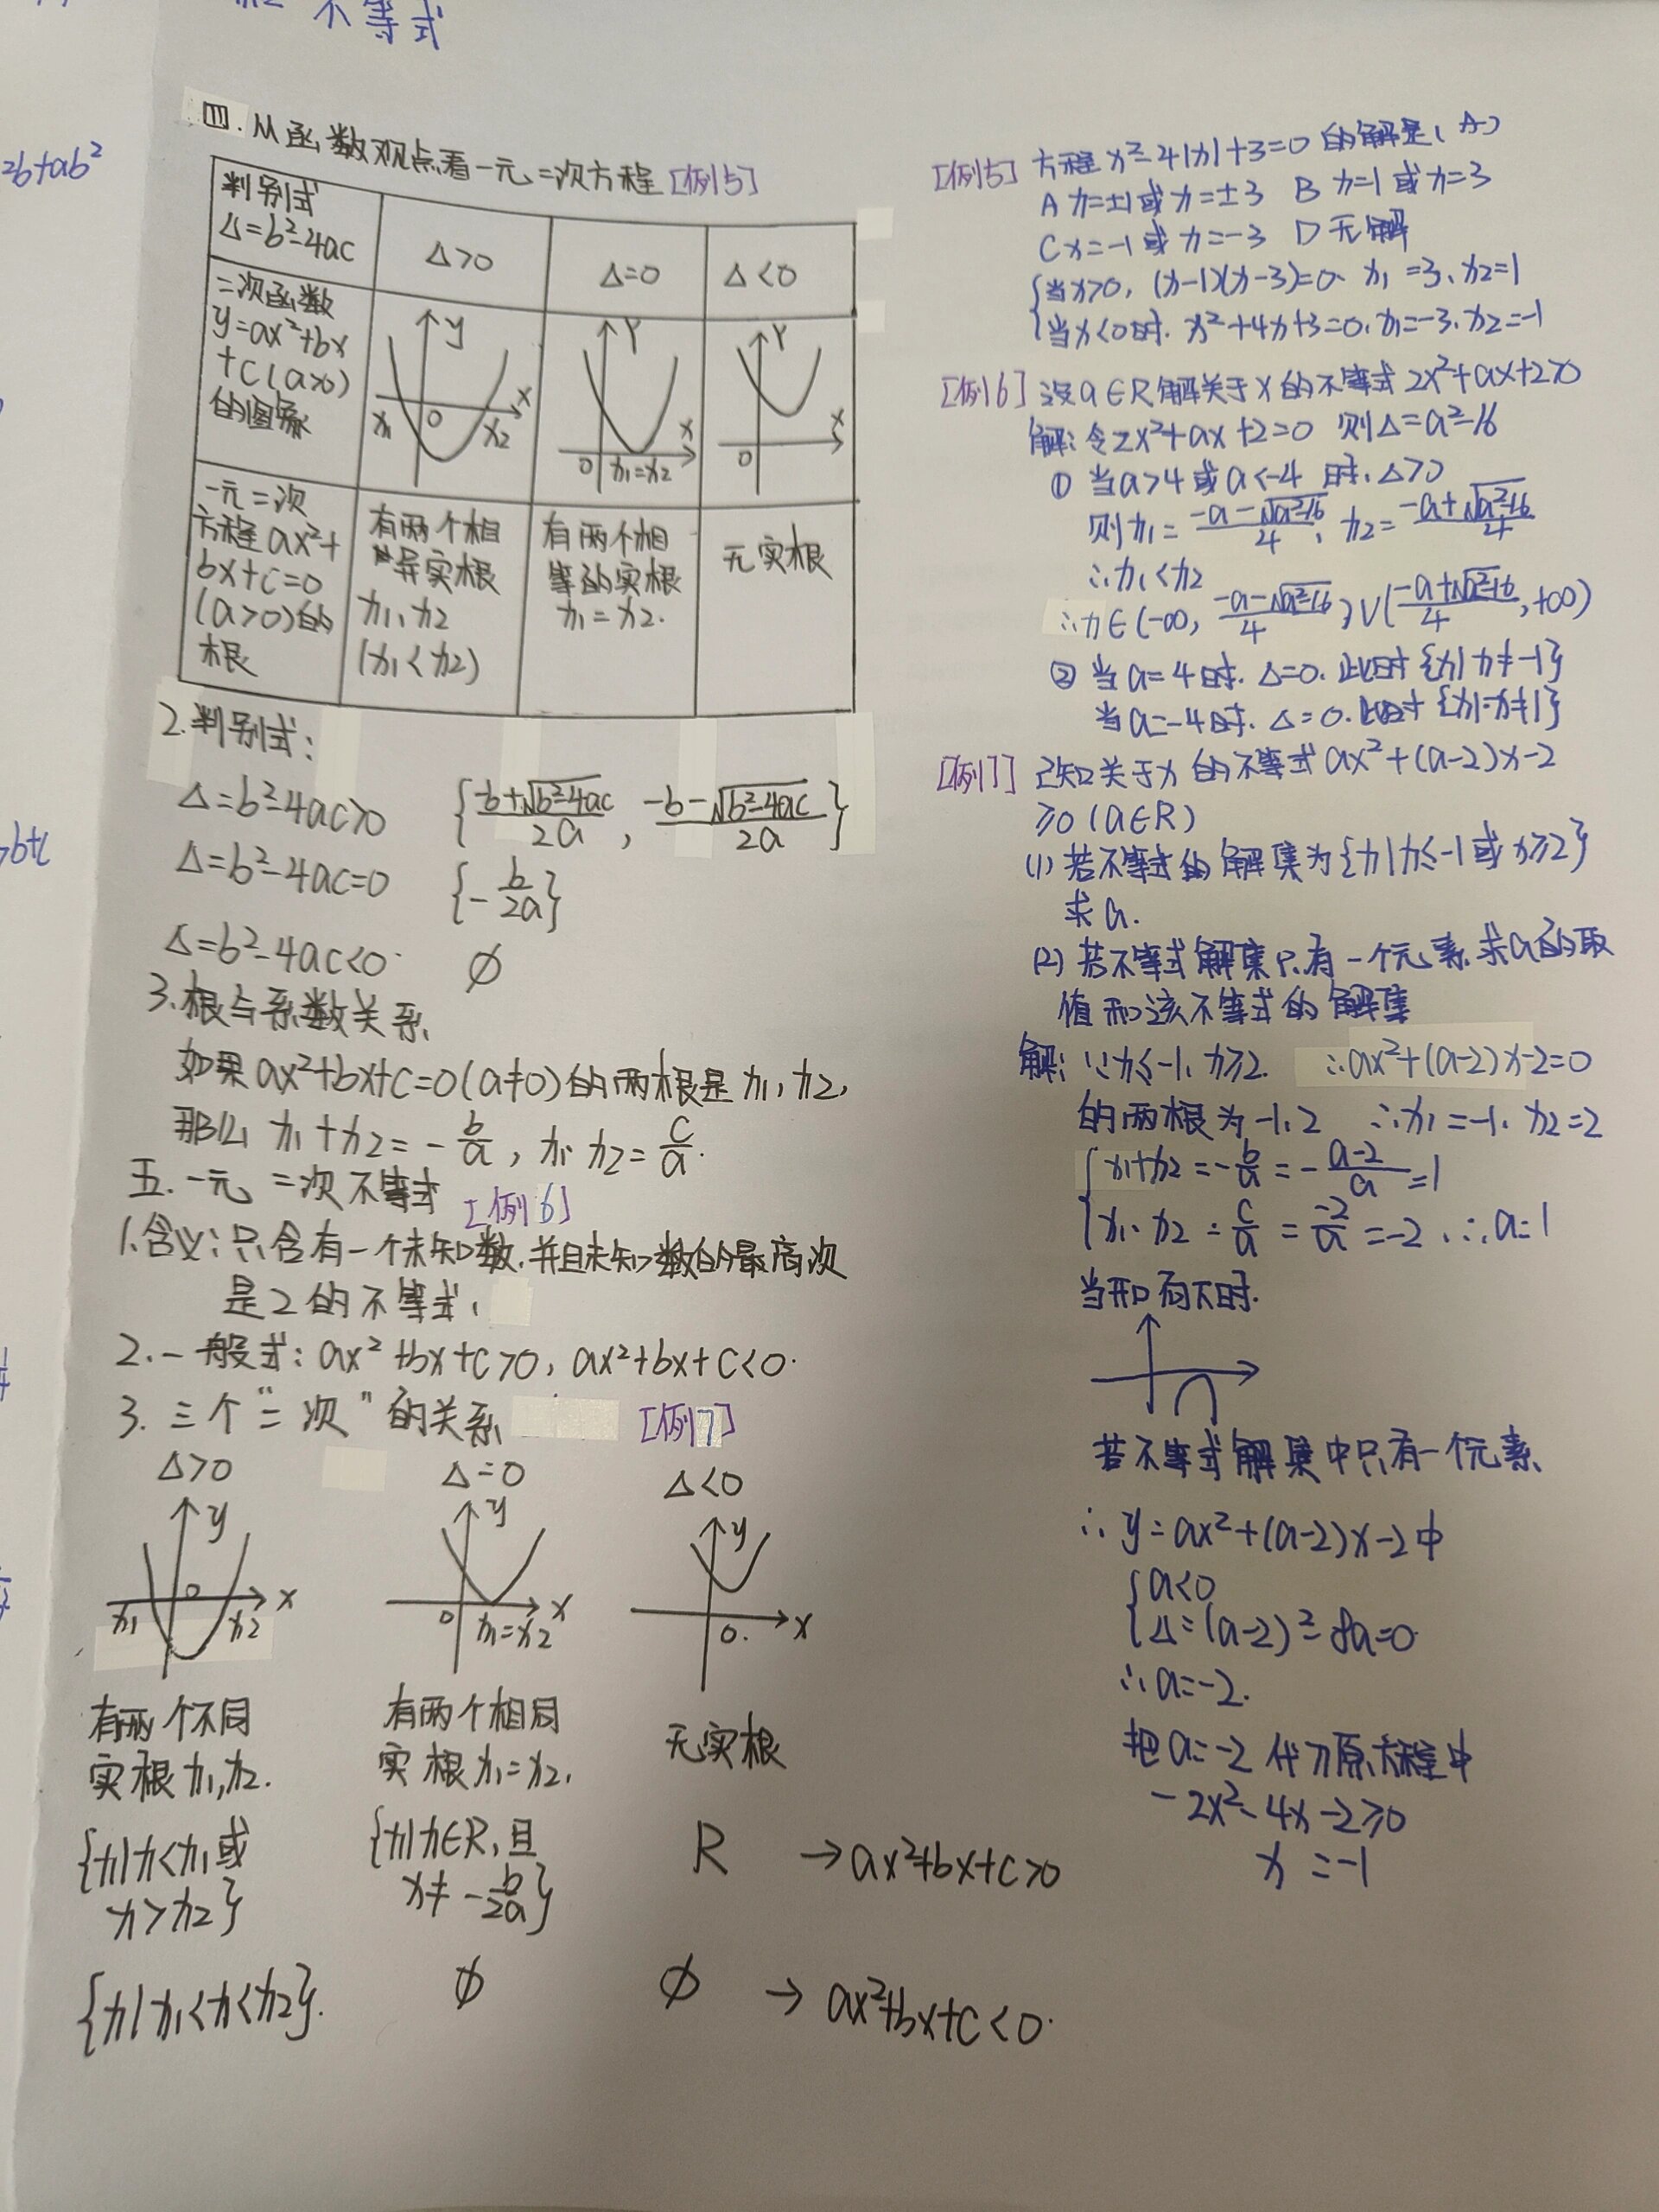 不等式
2b+ab²
>b+c
四.从函数观点看一元二次方程[例5]
判别式 Δ=b²-4ac
Δ>0
Δ=0
Δ<0
二次函数
y=ax²+bx
+c(a>0)
的图象
y
x
x₁ 0 x₂
Y
x
0 x₁=x₂
Y
x
0
一元二次
方程ax²+
bx+c=0
(a>0)的
根
有两个相
异实根
x₁、x₂
(x₁<x₂)
有两个相
等的实根
x₁=x₂.
无实根
2.判别式:
Δ=b²-4ac>0 {(-b+√(b²-4ac))/2a, (-b-√(b²-4ac))/2a}
Δ=b²-4ac=0 {-b/2a}
Δ=b²-4ac<0. ∅
3.根与系数关系
如果ax²+bx+c=0(a≠0)的两根是x₁,x₂,
那么x₁+x₂=-b/a, x₁·x₂=c/a.
五.一元二次不等式 [例6]
1.含义:只含有一个未知数,并且未知数的最高次
是2的不等式、
2.一般式:ax²+bx+c>0, ax²+bx+c<0.
3.三个“二次”的关系 [例7]
Δ>0 Δ=0 Δ<0
y
0 x
x₁ x₂
y
0 x
x₁=x₂
y
0. x
有两个不同
实根x₁,x₂.
有两个相同
实根x₁=x₂.
无实根
{x|x<x₁或
x>x₂}
{x|x∈R,且
x≠-b/2a}
R →ax²+bx+c>0
{x|x₁<x<x₂}. ∅ ∅ → ax²+bx+c<0.
[例5] 方程x²-4|x|+3=0的解是(A)
A x=±1或x=±3 B x=1或x=3
C x=-1或x=-3 D 无解
{当x>0, (x-1)(x-3)=0. x₁=3、x₂=1
当x<0时. x²+4x+3=0. x₁=-3、x₂=-1
[例6] 设a∈R解关于x的不等式2x²+ax+2>0
解:令2x²+ax+2=0 则Δ=a²-16
① 当a>4或a<-4时,Δ>0
则x₁=(-a-√(a²-16))/4、x₂=(-a+√(a²-16))/4
∴x₁<x₂
∴x∈(-∞, (-a-√(a²-16))/4)∪((-a+√(a²-16))/4, +∞)
② 当a=4时. Δ=0. 此时{x|x≠-1}
当a=-4时. Δ=0. 此时{x|x≠1}
[例7] 已知关于x的不等式ax²+(a-2)x-2
≥0(a∈R)
(1)若不等式的解集为{x|x≤-1或x≥2}
求a.
(2)若不等式解集只有一个元素,求a的取
值和该不等式的解集
解:∵x≤-1、x≥2. ∴ax²+(a-2)x-2=0
的两根为-1、2 ∴x₁=-1、x₂=2
{x₁+x₂=-b/a=-(a-2)/a=1
x₁·x₂=c/a=-2/a=-2. ∴a=1
当开口向下时.
若不等式解集中只有一个元素、
∴y=ax²+(a-2)x-2中
{a<0
Δ=(a-2)²-8a=0.
∴a=-2.
把a=-2代入原方程中
-2x²-4x-2≥0
x=-1